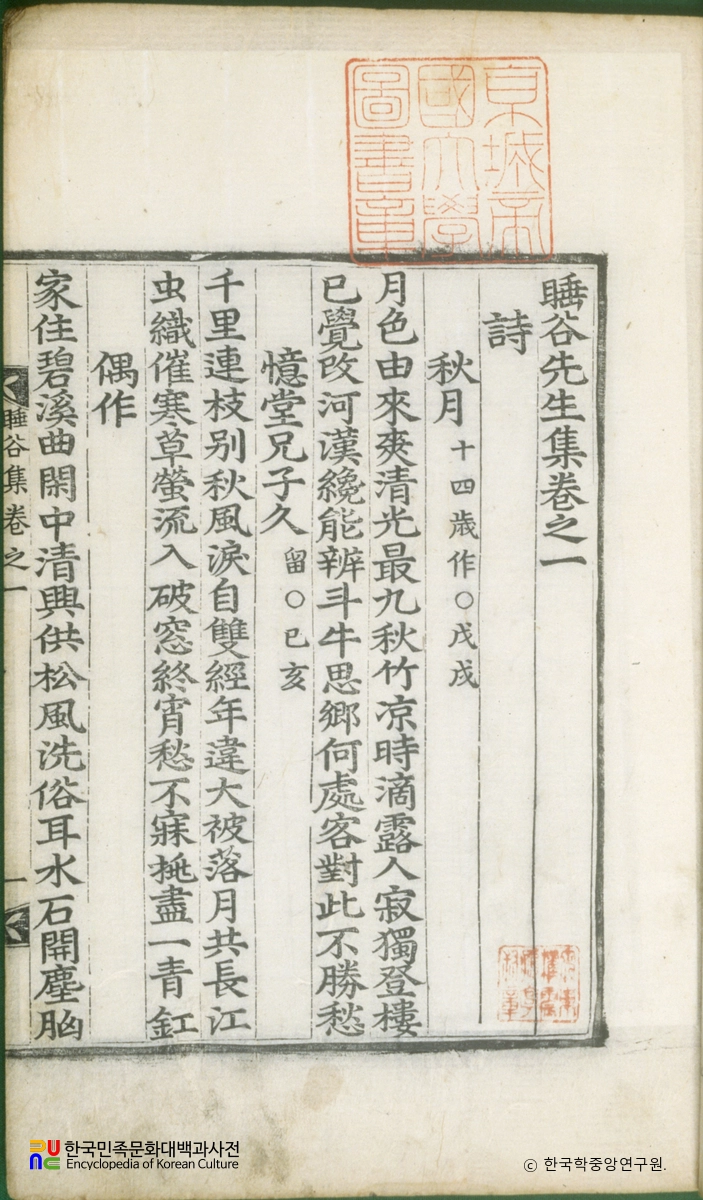 京城帝
國大學
圖書章
睡谷先生集卷之一
詩
秋月 十四歲作○戊戌
月色由來爽清光最九秋竹凉時滴露人寂獨登樓
已覺改河漢纔能辨斗牛思鄉何處客對此不勝愁
憶堂兄子久 留○已亥
千里連枝别秋風淚自雙經年違大被落月共長江
虫織催寒草螢流入破窓終宵愁不寐挑盡一青釭
偶作
家住碧溪曲閑中清興供松風洗俗耳水石開塵胸
睡谷集卷之一
一
한국민족문화대백과사전
Encyclopedia of Korean Culture
© 한국학중앙연구원.